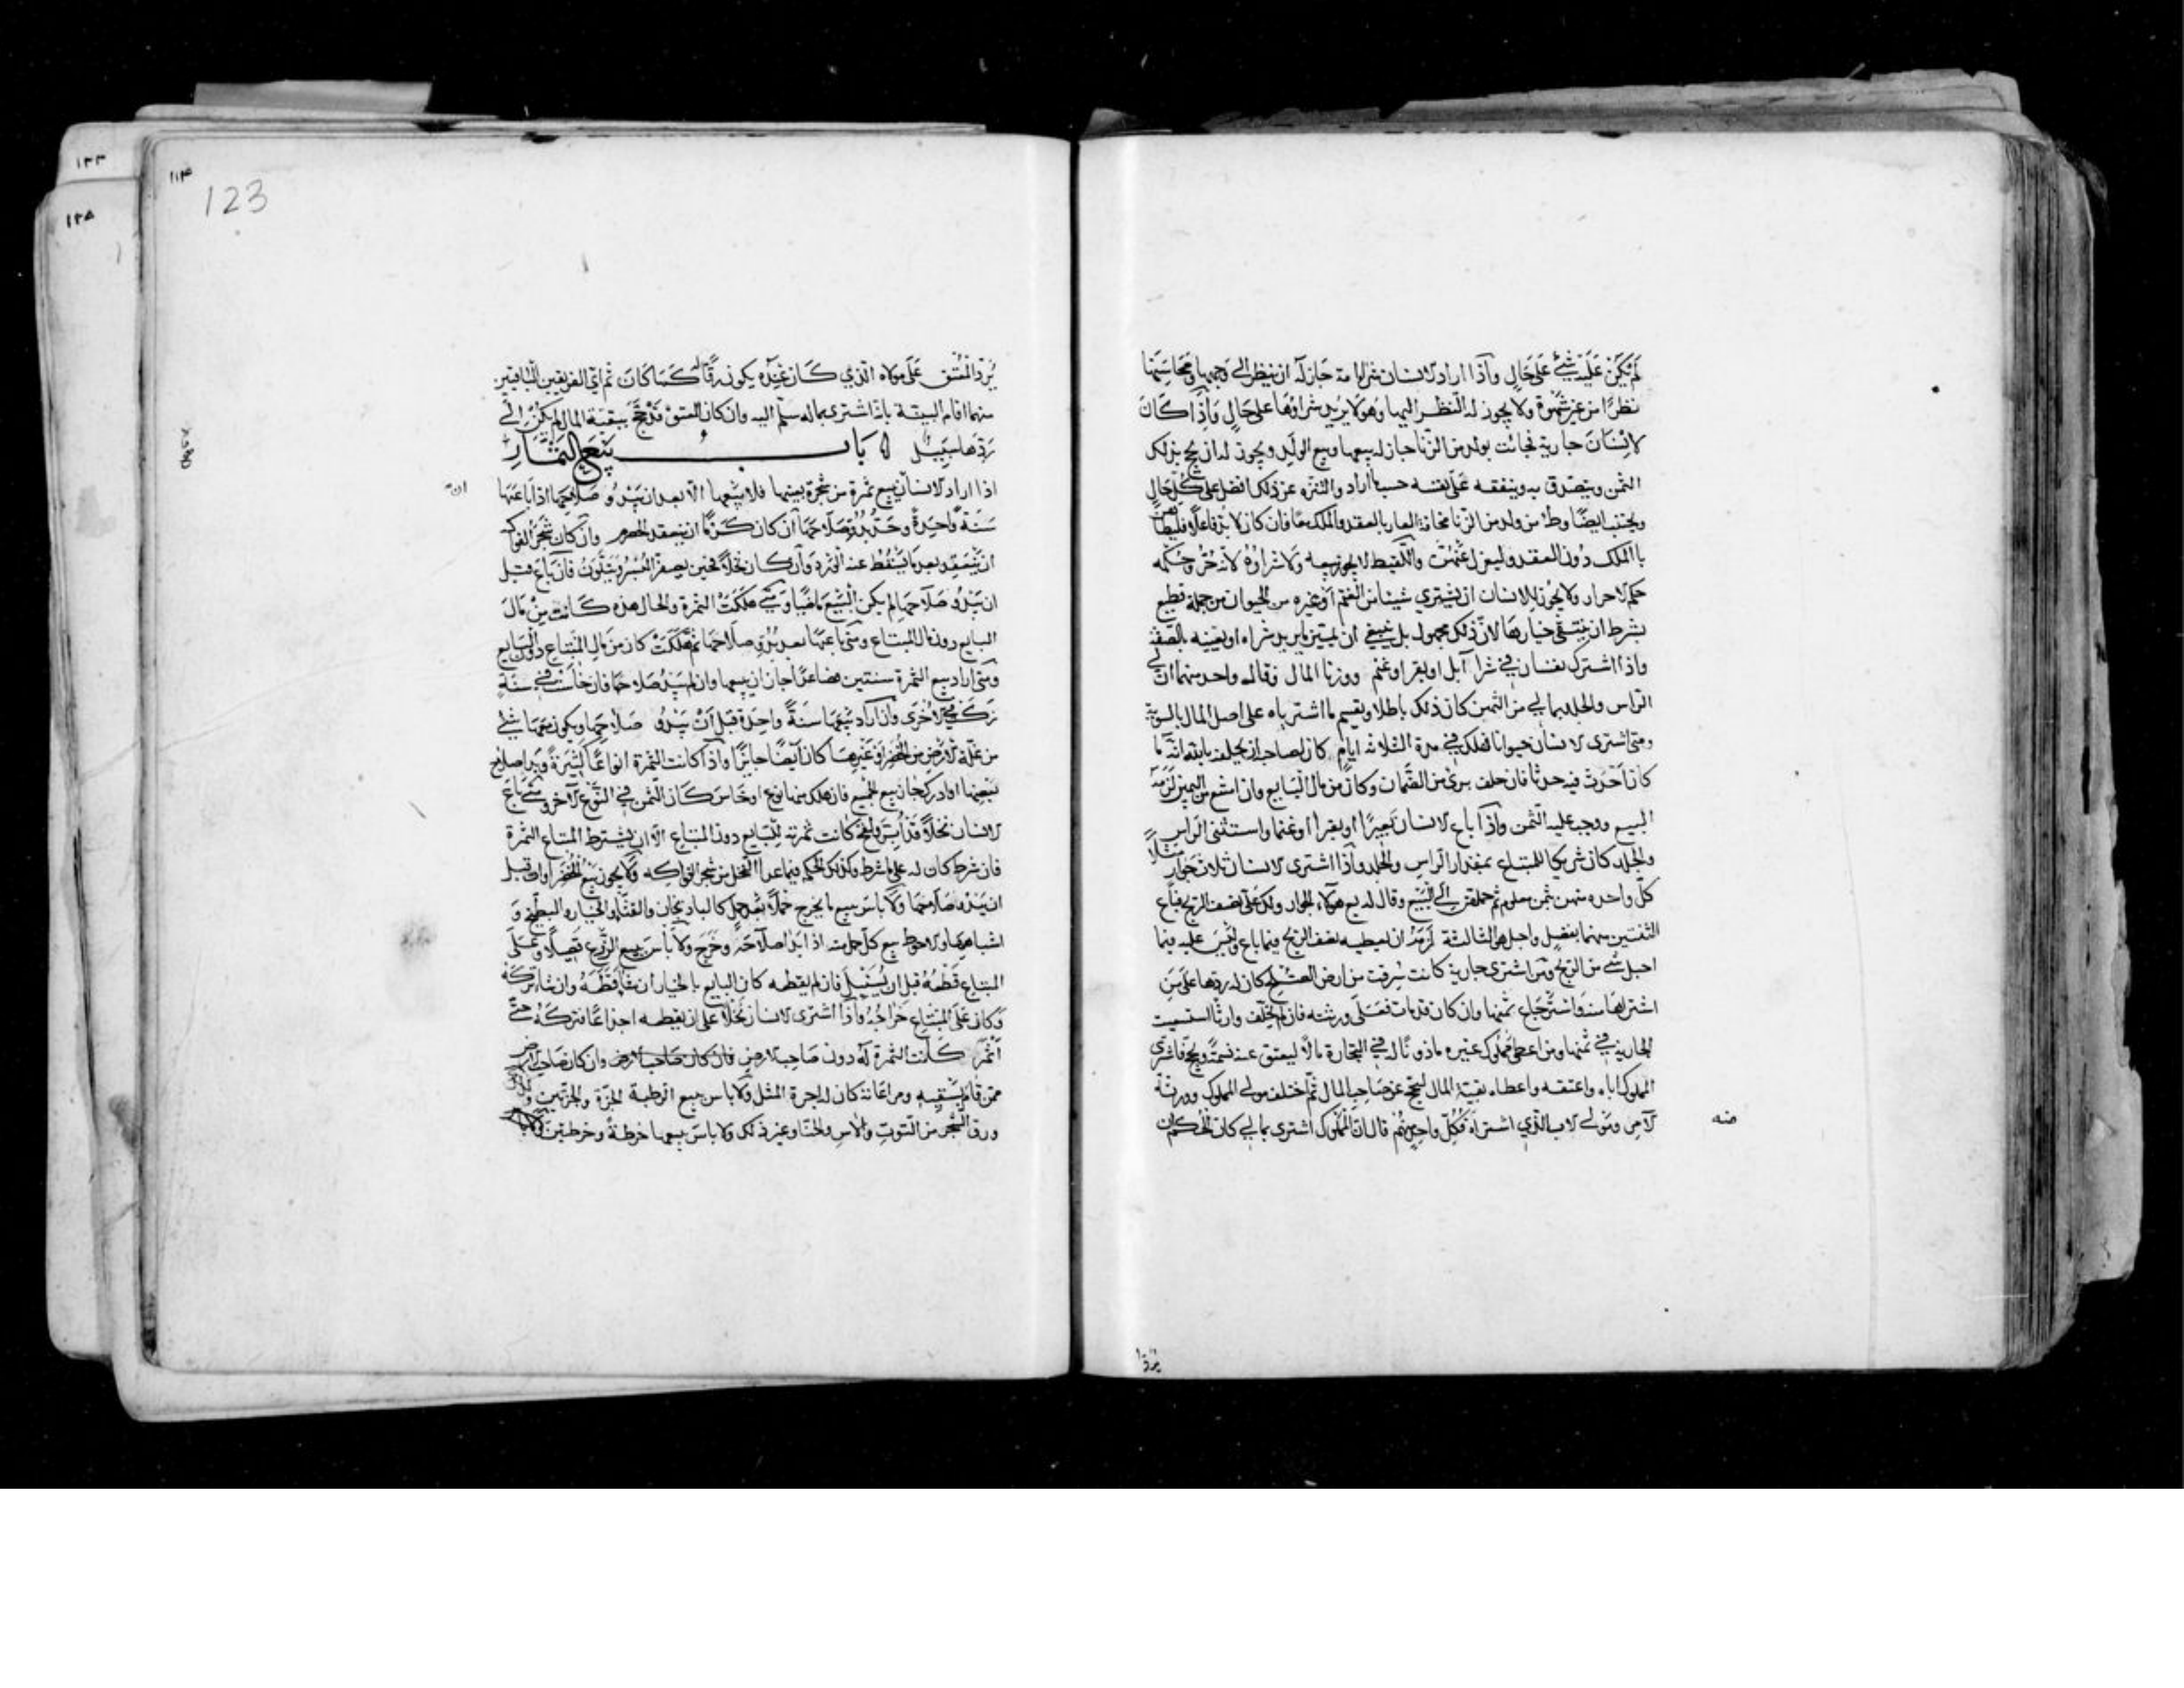 لم يكن عليه شيء على حال واذا اراد الانسان شرا امة جاز له ان ينظر الى وجهها ومحاسنها
نظرا من غير شهوة ولا يجوز له النظر اليها وهو لا يريد شراؤها على حال واذا كان
لانسان جارية فجائت بولد من الزنا جاز له بيعها وبيع الولد ويجوز له ان يحج بذلك
الثمن ويتصدق به وينفقه على نفسه حسب ما اراد والتنزه عن ذلك افضل على كل حال
ويجتنب ايضا وطء من ولد من الزنا مخافة العار بالعقد والملك معا فان كان لا بد فاعلا فليطأ
بالملك دون العقد وليعزل عنهن واللقيط لا يجوز بيعه ولا شراؤه لانه حر حكمه
حكم الاحرار ولا يجوز للانسان ان يشتري شيئا من الغنم او غيره من الحيوان من جملة قطيع
بشرط ان ينتقى خيارها لان ذلك مجهول بل ينبغي ان يميز ما يريد شراه او يعينه بالصفة
واذا اشترك نفسان في شرا ابل او بقر او غنم ووزنا المال وقال واحد منهما ان لي
الراس والجلد بمالي من الثمن كان ذلك باطلا ويقسم ما اشترياه على اصل المال بالسوية
ومتى اشترى الانسان حيوانا فهلك في مدة الثلاثة ايام كان لصاحبه ان يحلفه بالله انه ما
كان احدث فيه حدثا فان حلف برئ من الضمان وكان من مال البايع وان امتنع من اليمين لزمه
البيع ووجب عليه الثمن واذا باع الانسان بعيرا او بقرا او غنما واستثنى الراس
والجلد كان شريكا للمبتاع بمقدار الراس والجلد واذا اشترى الانسان ثلاث جوار مثلا
كل واحدة منهن بثمن معلوم ثم حملهن الى البيع وقال له بع هؤلاء الجوار ولك على نصف الربح فباع
الثنتين منهما بفضل واحبل هو الثالثة لزمه ان يعطيه نصف الربح فيما باع وليس عليه فيما
احبل شيء من الربح ومن اشترى جارية كانت سرقت من ارض الصلح كان له ردها على من
اشتراها منه واسترجاع ثمنها وان كان قد مات فعلى ورثته فان لم يخلف وارثا استسعيت
الجارية في ثمنها ومن اعطى مملوك غيره ماذو ناله في التجارة مالا ليعتق عنه نسمة ويحج فاشترى
المملوك اباه واعتقه واعطاه بقية المال ليحج عن صاحب المال ثم اختلف مولى المملوك وورثة
الامر ومولى الاب الذي اشتراه منه فكل واحد منهم قال ان المملوك اشترى بمالي كان الحكم ان
يرد
١٢٣
١٢٥
١١٣
123
يرد المعتق على مولاه الذي كان عنده يكون رقا له كما كان ثم اي الفريقين الباقيين
منهما اقام البينة بانه اشترى بماله سلم اليه وان كان المعتق قد حج ببقية المال لم يكن الى
ردها سبيل باب بيع الثمار
اذا اراد الانسان بيع ثمرة من شجرة بعينها فلا يبيعها الا بعد ان يبدو صلاحها اذا باعها
سنة واحدة وحد بدو صلاحها ان كان كرما ان ينعقد الحصرم وان كان شجر الفواكه
ان ينعقد بعد ما يسقط عنه الورد وان كان نخلا فحين يصفر البسر ويتلون فان باع قبل
ان يبدو صلاحها لم يكن البيع ماضيا ومتى هلكت الثمرة والحال هذه كانت من مال
البايع دون مال المبتاع ومتى باعها بعد بدو صلاحها ثم هلكت كان من مال المبتاع دون البايع
ومتى اراد بيع الثمرة سنتين فصاعدا جاز ان يبيعها وان لم يبد صلاحها فان خاست في سنة
زكت في الاخرى وان اراد بيعها سنة واحدة قبل ان يبدو صلاحها ويكون معها شيء
من غلة الارض من الخضر او غيرها كان ايضا جايزا واذا كانت الثمرة انواعا كثيرة وبدا صلاح
بعضها او ادرك جاز بيع الجميع فان هلك منها نوع او خاس كان الثمن في النوع الاخر ومتى باع
الانسان نخلا قد ابر ولقح كانت ثمرته للبايع دون المبتاع الا ان يشترط المبتاع الثمرة
فان شرط كان له على ما شرط وكذلك الحكم فيما عدا النخل من شجر الفواكه ولا يجوز بيع الخضراوات قبل
ان يبدو صلاحها ولا باس ببيع ما يخرج حملا بعد حمل كالباذنجان والقثاء والخيار والبطيخ و
اشباهها والاحوط بيع كل حمل منه اذا بدا صلاحه وخرج ولا باس ببيع الزرع قصيلا وعلى
المبتاع قطعه قبل ان يسنبل فان لم يقطعه كان البايع بالخيار ان شاء قطعه وان شاء تركه
وكان على المبتاع خراجه واذا اشترى الانسان نخلا على ان يقطعه اجذاعا فتركه حتى
اثمر كانت الثمرة له دون صاحب الارض فان كان صاحب الارض وان كان صاحب الارض
ممن قام بسقيه ومراعاته كان له اجرة المثل ولا باس ببيع الرطبة الجزة والجزتين وكذلك
ورق الشجر من التوت والاس والحنا وغير ذلك ولا باس ببيعها خرطة وخرطتين